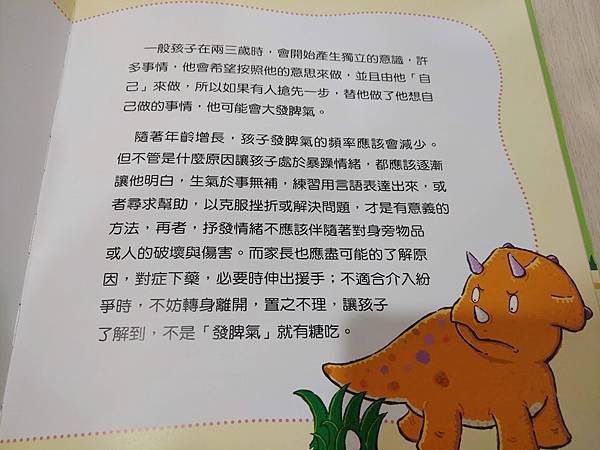 一般孩子在兩三歲時，會開始產生獨立的意識，許
多事情，他會希望按照他的意思來做，並且由他「自
己」來做，所以如果有人搶先一步，替他做了他想自
己做的事情，他可能會大發脾氣。
隨著年齡增長，孩子發脾氣的頻率應該會減少。
但不管是什麼原因讓孩子處於暴躁情緒，都應該逐漸
讓他明白，生氣於事無補，練習用言語表達出來，或
者尋求幫助，以克服挫折或解決問題，才是有意義的
方法，再者，抒發情緒不應該伴隨著對身旁物品
或人的破壞與傷害。而家長也應盡可能的了解原
因，對症下藥，必要時伸出援手；不適合介入紛
爭時，不妨轉身離開，置之不理，讓孩子
了解到，不是「發脾氣」就有糖吃。